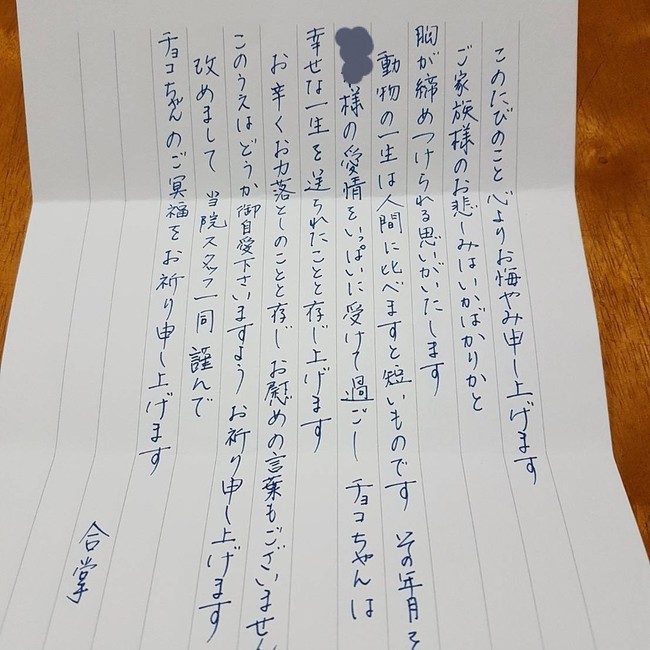 このたびのこと 心よりお悔やみ申し上げます
ご家族様のお悲しみはいかばかりかと
胸が締めつけられる思いがいたします
動物の一生は人間に比べますと短いものです その年月
様の愛情をいっぱいに受けて過ごし チョコちゃんは
幸せな一生を送られたことと存じ上げます
お辛くお力落としのことと存じ お慰めの言葉もございません
このうえはどうか御自愛下さいますよう お祈り申し上げます
改めまして 当院スタッフ一同 謹んで
チョコちゃんのご冥福をお祈り申し上げます
合掌